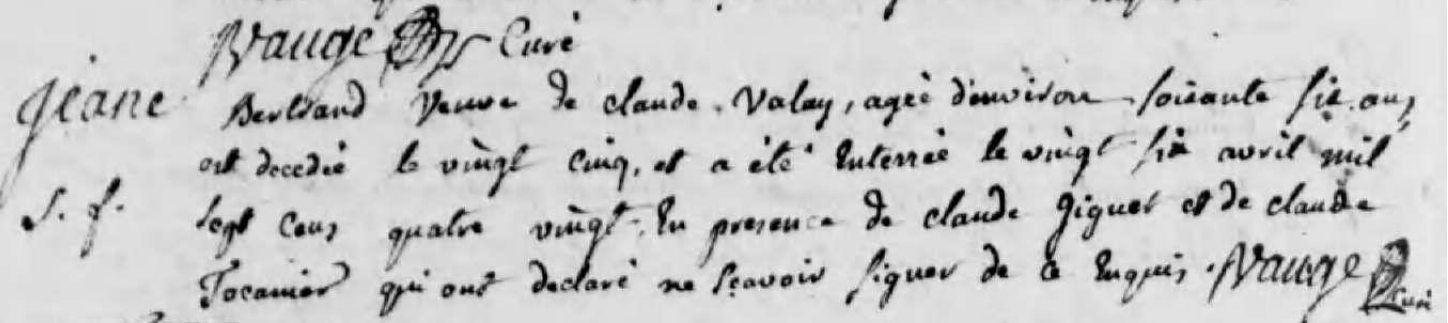 Vauge Curé
Jeane Bertrand Veuve de claude Valay, ageé d'environ soixante six ans
est decedeé le vingt cinq, et a été Enterreé le vingt six avril mil
S. f. sept Cens quatre vingt. En presence de claude Giguet et de claude
Tocanier qui ont declaré ne sçavoir signer de ce Enquis. Vauge Curé